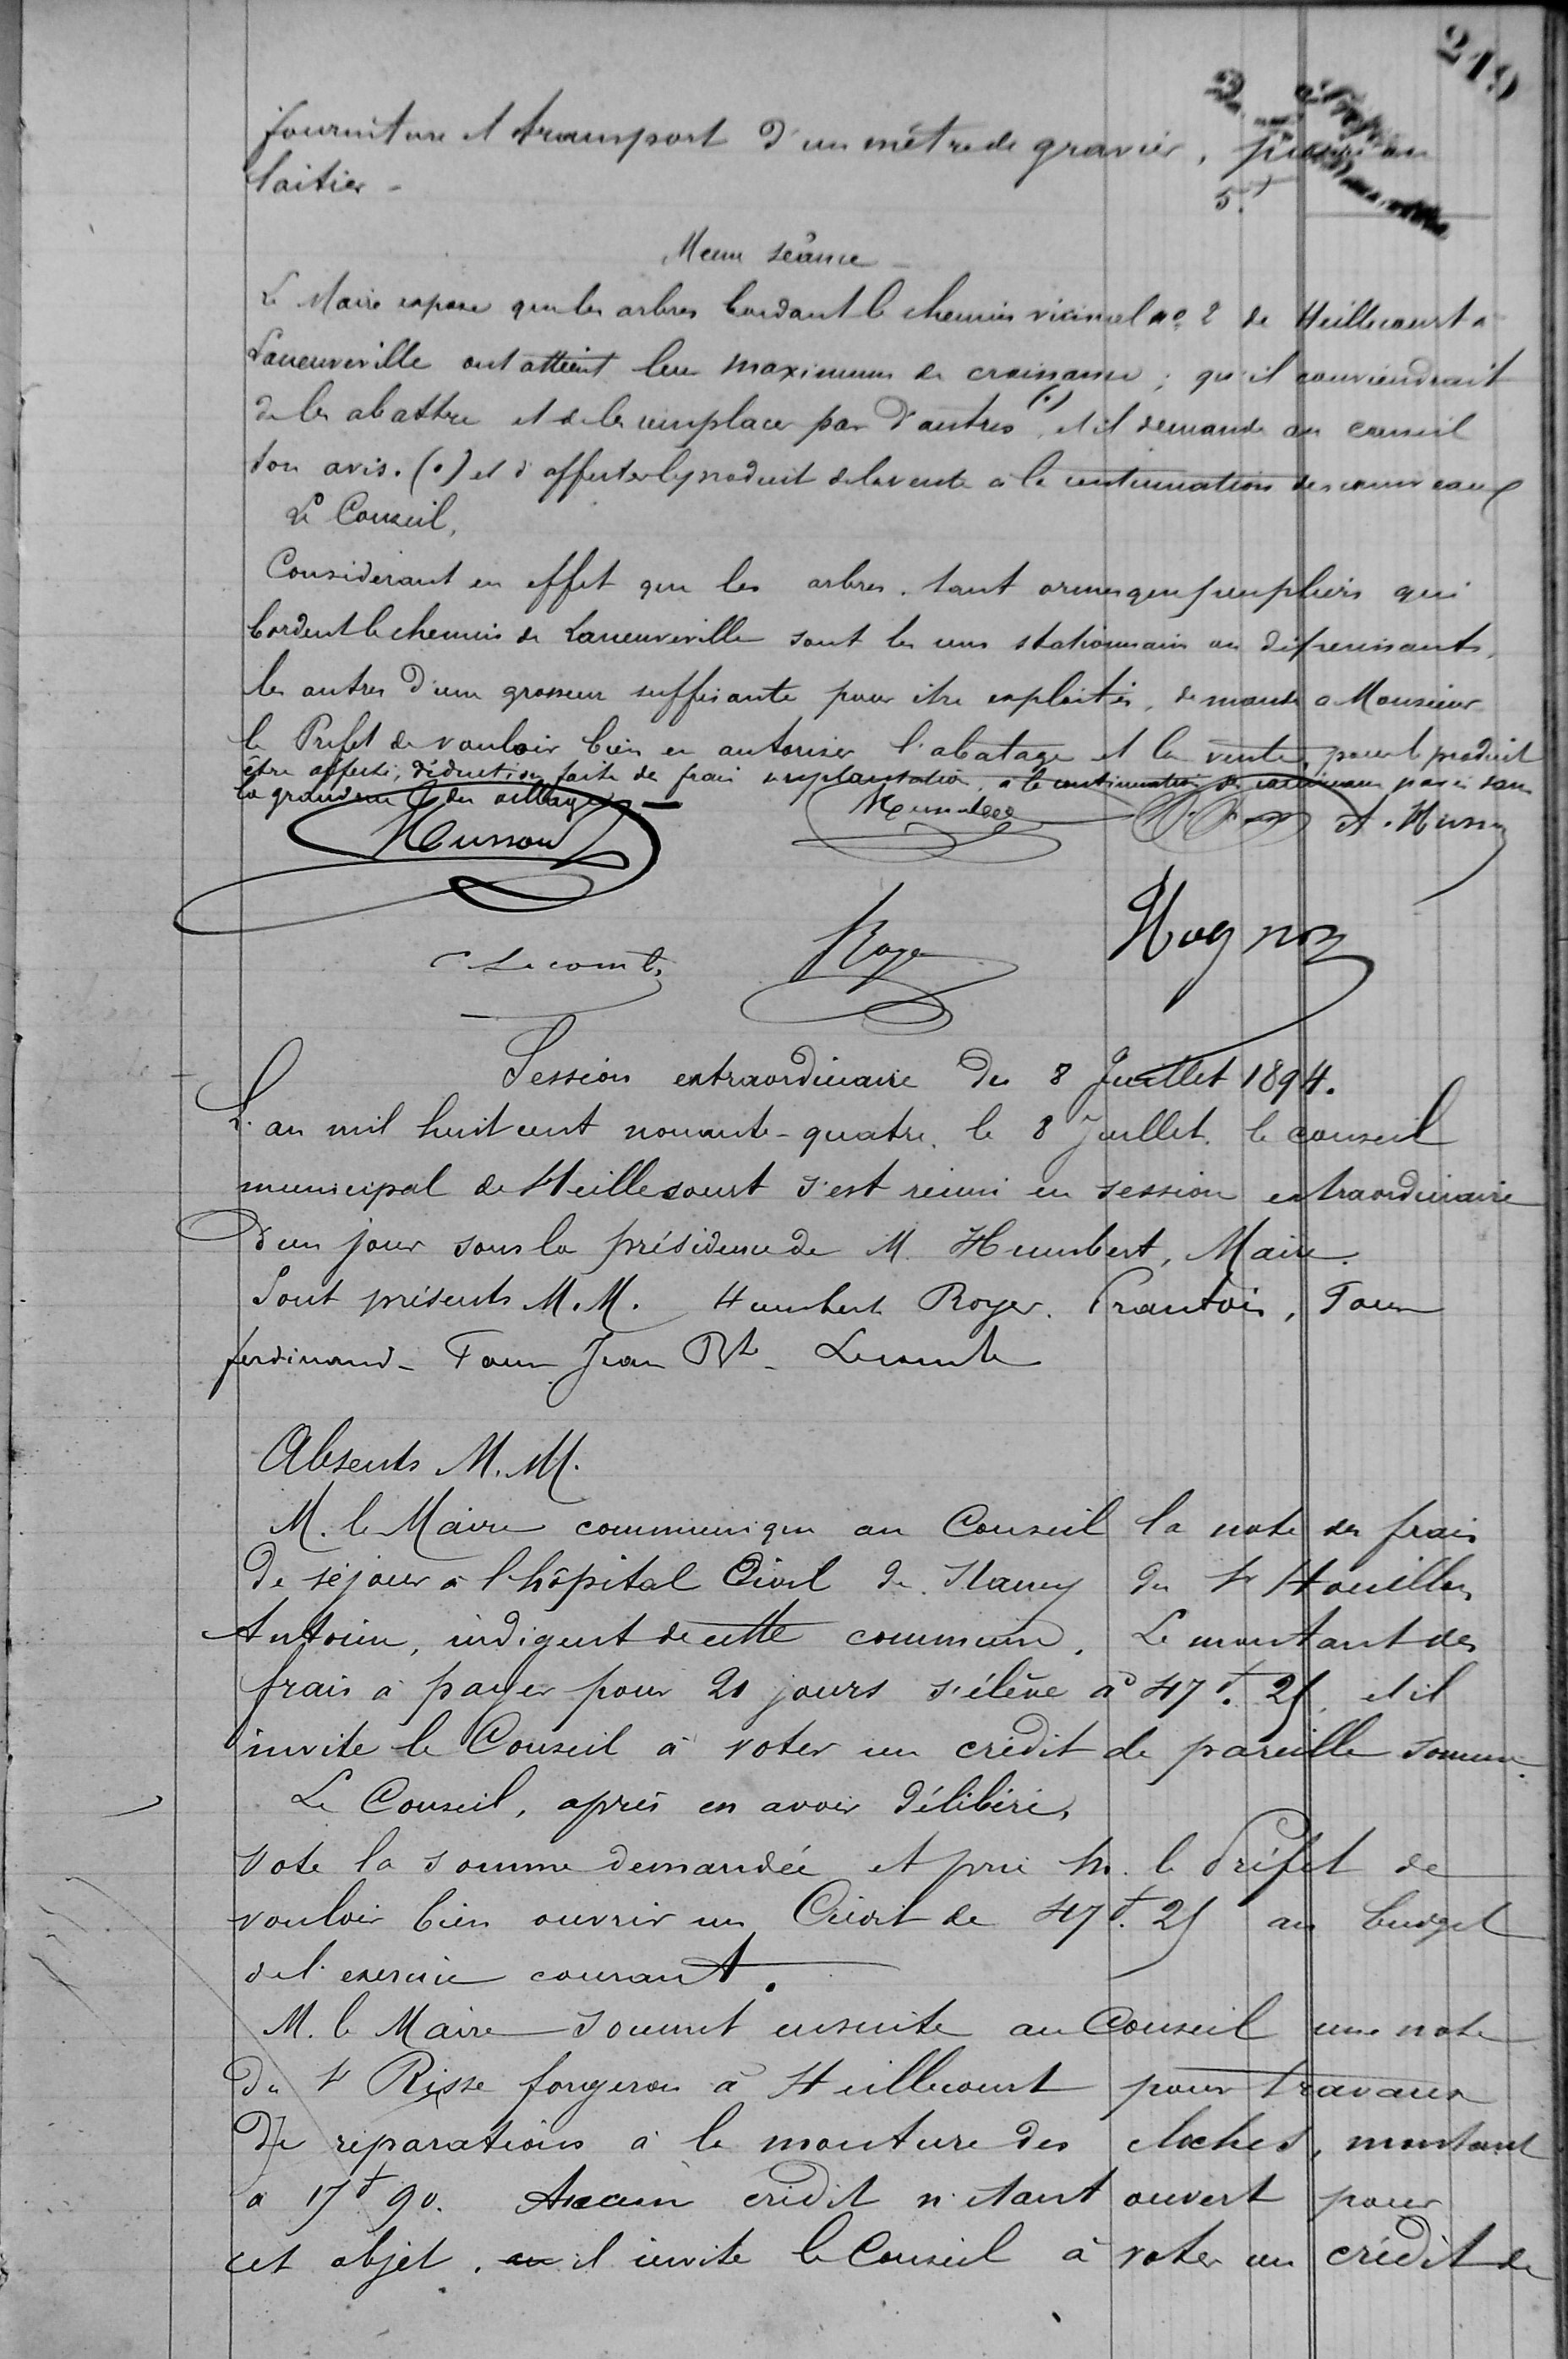 219
fourniture et transport d'un mètre de gravier, pierre ou
laitier -
5.f
Même séance -
Le Maire expose que les arbres bordant le chemin vicinal no. 2 de Heillecourt à
Laneuveville ont atteint leur maximum de croissance ; qu'il conviendrait
de les abattre et de les remplacer par d'autres (.), et il demande au conseil
son avis. (.) et d'affecter le produit de la vente à la continuation des caniveaux
Le Conseil,
Considérant en effet que les arbres, tant ormes que peupliers qui
bordent le chemin de Laneuveville sont les uns stationnaires ou dépérissants,
les autres d'une grosseur suffisante pour être exploités, demande à Monsieur
le Préfet de vouloir bien en autoriser l'abatage et la vente, pour le produit
être affecté, déduction faite de frais implantation, à la continuation de caniveaux pavés dans
la grand rue du village -
Husson A. Husson
Lecomte Roye Hognon
Session extraordinaire du 8 Juillet 1894.
L'an mil huit cent nonante-quatre, le 8 Juillet, le conseil
municipal de Heillecourt s'est réuni en session extraordinaire
d'un jour sous la présidence de M. Humbert, Maire.
Sont présents M.M. Humbert Royer. Frantois, Tour
ferdinand - Tour Jean Bte - Lecomte
Absents M.M.
M. le Maire communique au Conseil la note des frais
de séjour à l'hôpital Civil de Nancy du Sr Houillon
Antoine, indigent de cette commune. Le montant des
frais à payer pour 21 jours s'élève à 47f. 25, et il
invite le Conseil à voter un crédit de pareille somme.
Le Conseil, après en avoir délibéré,
vote la somme demandée et prie M. le Préfet de
vouloir bien ouvrir un Crédit de 47f. 25 au budget
de l'exercice courant.
M. le Maire soumet ensuite au Conseil une note
du Sr Risse forgeron à Heillecourt pour travaux
de réparations à la monture des cloches, montant
à 17f 90. Aucun crédit n'étant ouvert pour
cet objet, il invite le Conseil à voter un crédit de